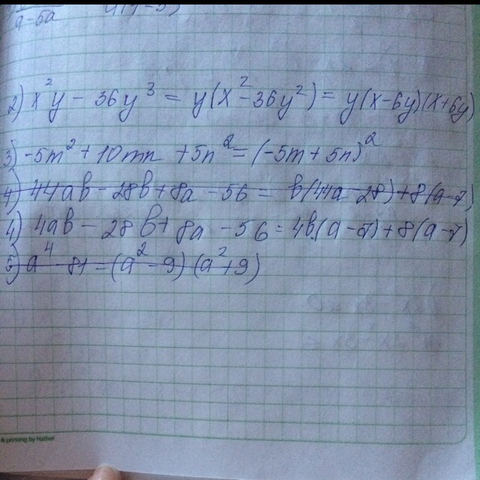 a-5a
2) x²y - 36y³ = y(x²-36y²) = y(x-6y)(x+6y)
3) -5m² + 10mn + 5n² = (-5m + 5n)²
4) 44ab - 28b + 8a - 56 = b(44a - 28) + 8(a-7)
4) 4ab - 28b + 8a - 56 = 4b(a-7) + 8(a-7)
5) a⁴ - 81 = (a² - 9)(a² + 9)